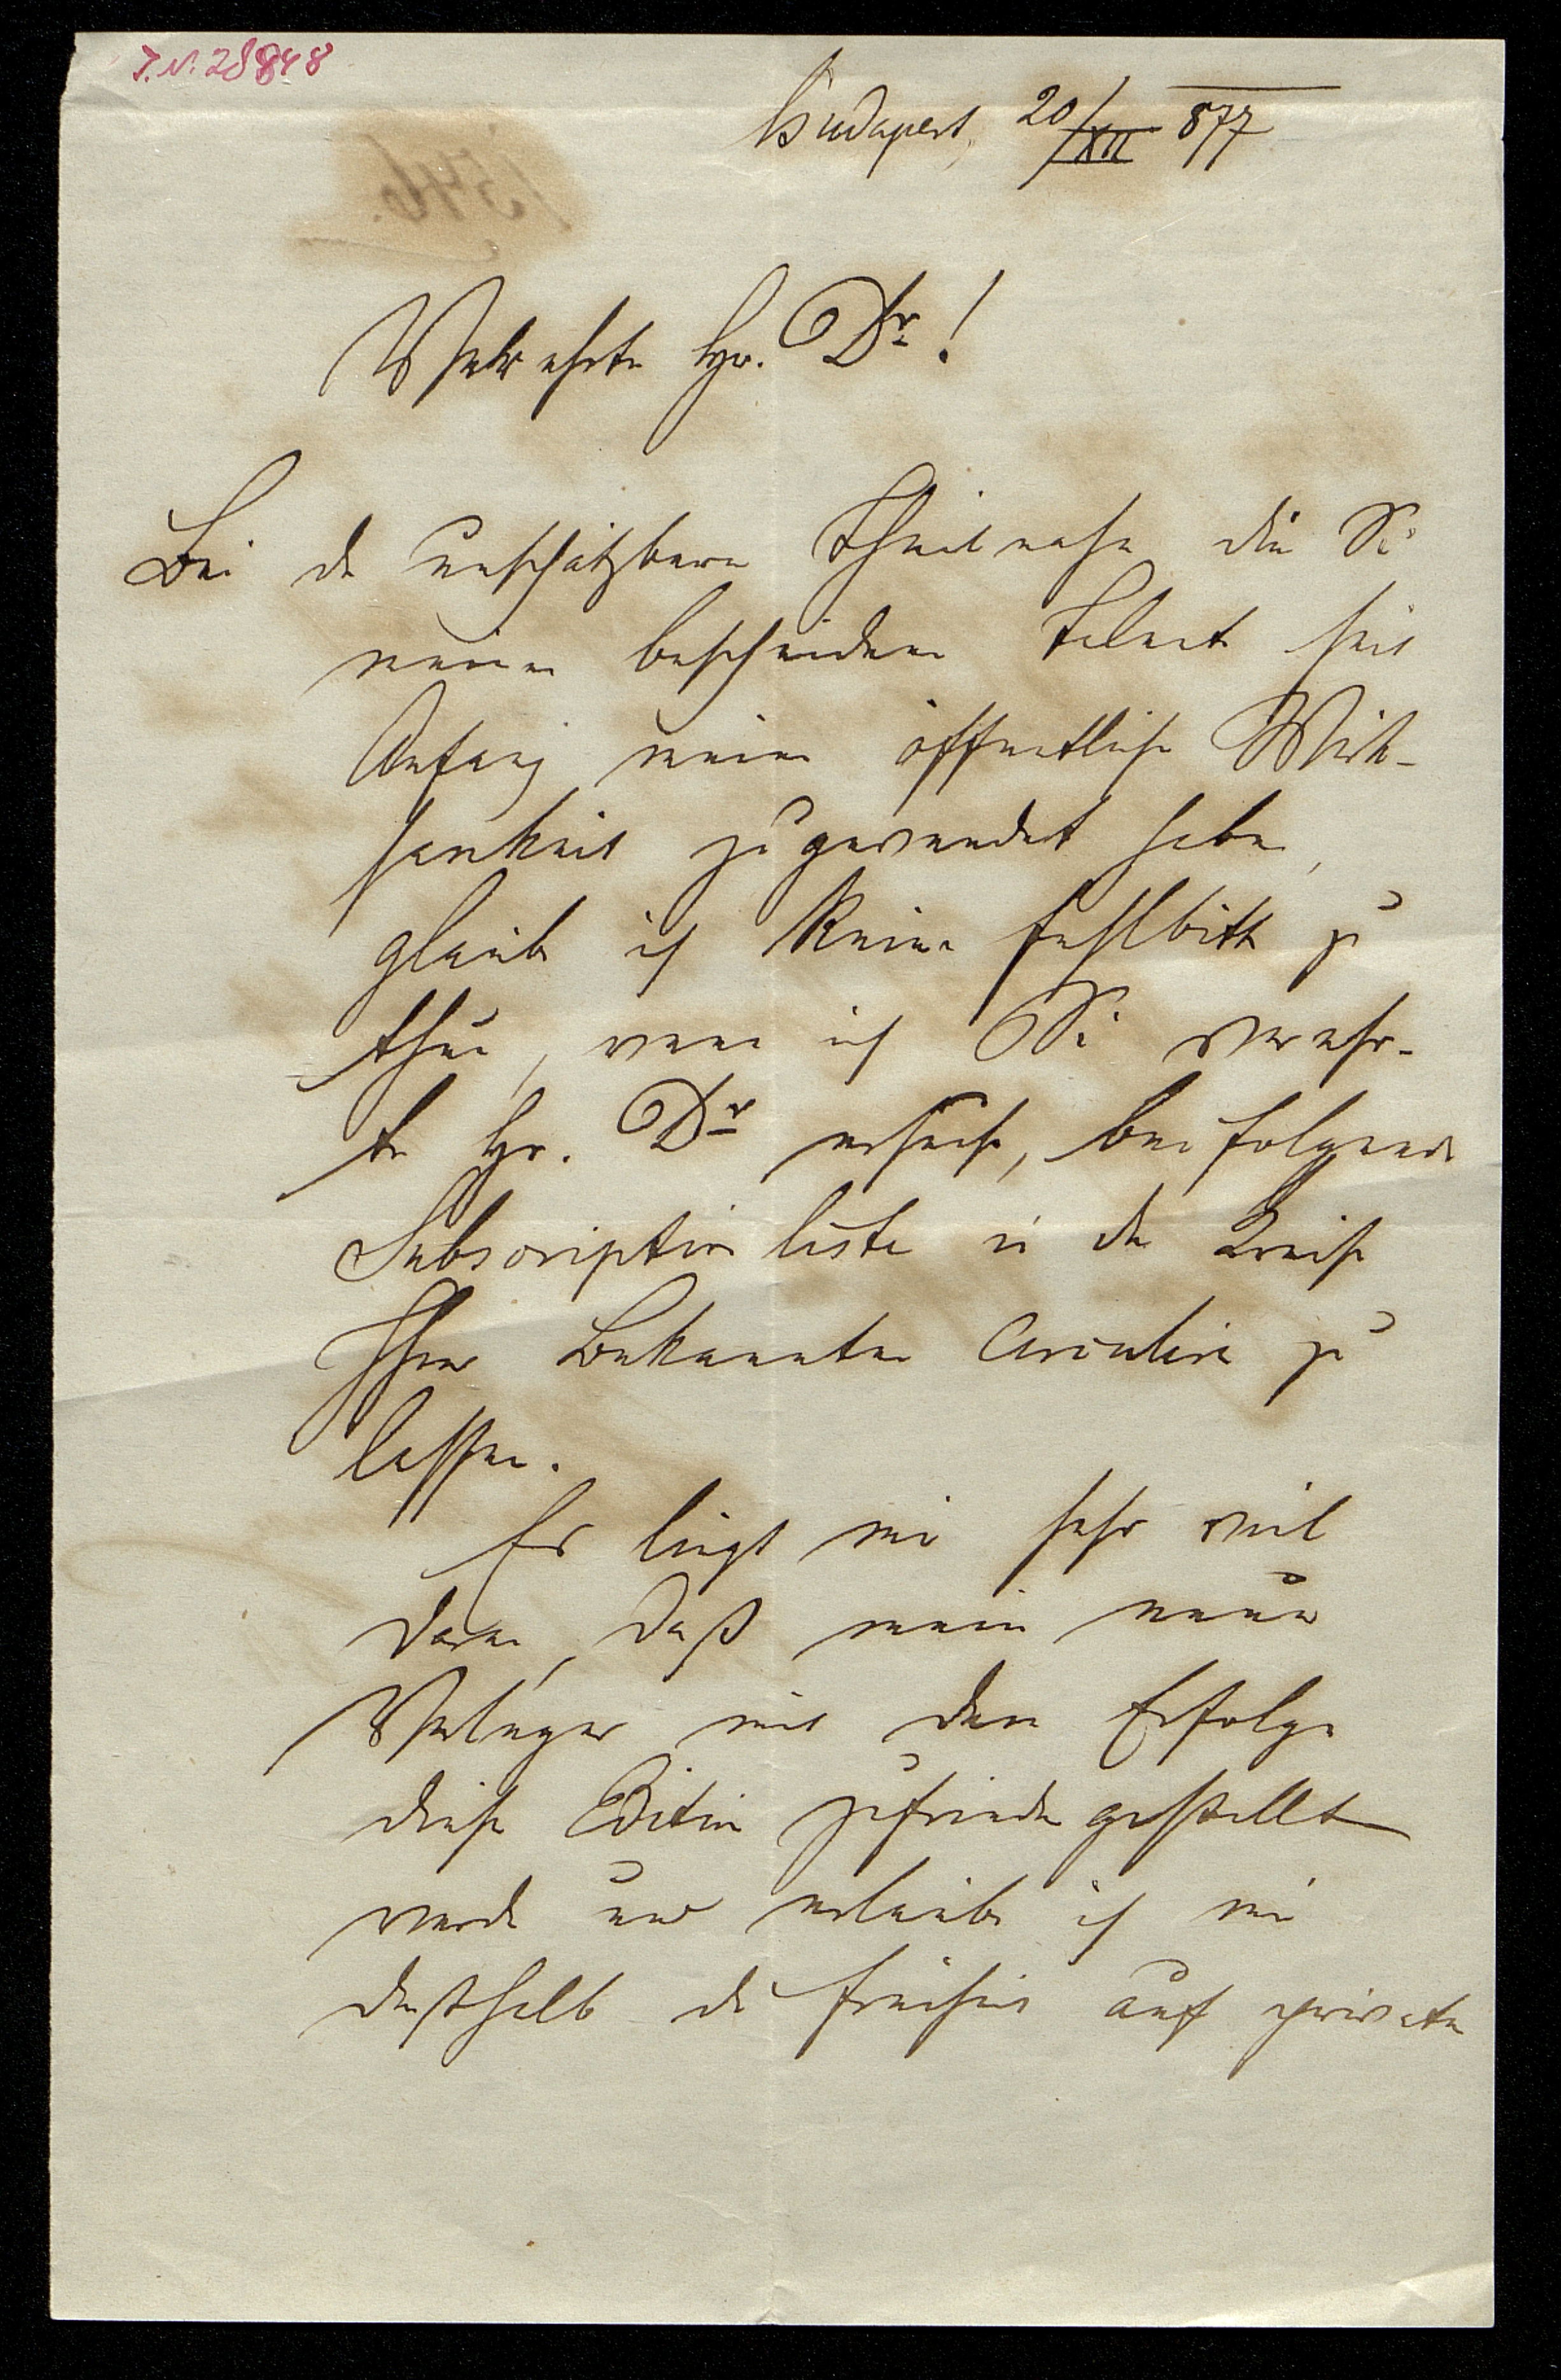 I.N. 28848
Budapest, 20/XII 877
1546.
Verehrter Hr. Dr!
Bei der unschätzbaren Theilnahme die Sie
meinem bescheidenen Talent seit
Anfang meiner öffentlichen Wirk-
samkeit zugewendet haben,
glaube ich keine Fehlbitte zu
thun, wenn ich Sie verehr-
ter Hr. Dr ersuche, beifolgende
Subscriptionsliste in dem Kreise
Ihrer Bekannten Circuliren zu
lassen.
Es liegt mir sehr viel
daran, daß mein neuer
Verleger mit dem Erfolge
dieser Edition zufrieden gestellt
werde und erlaube ich mir
deßhalb die Freiheit auf privatem